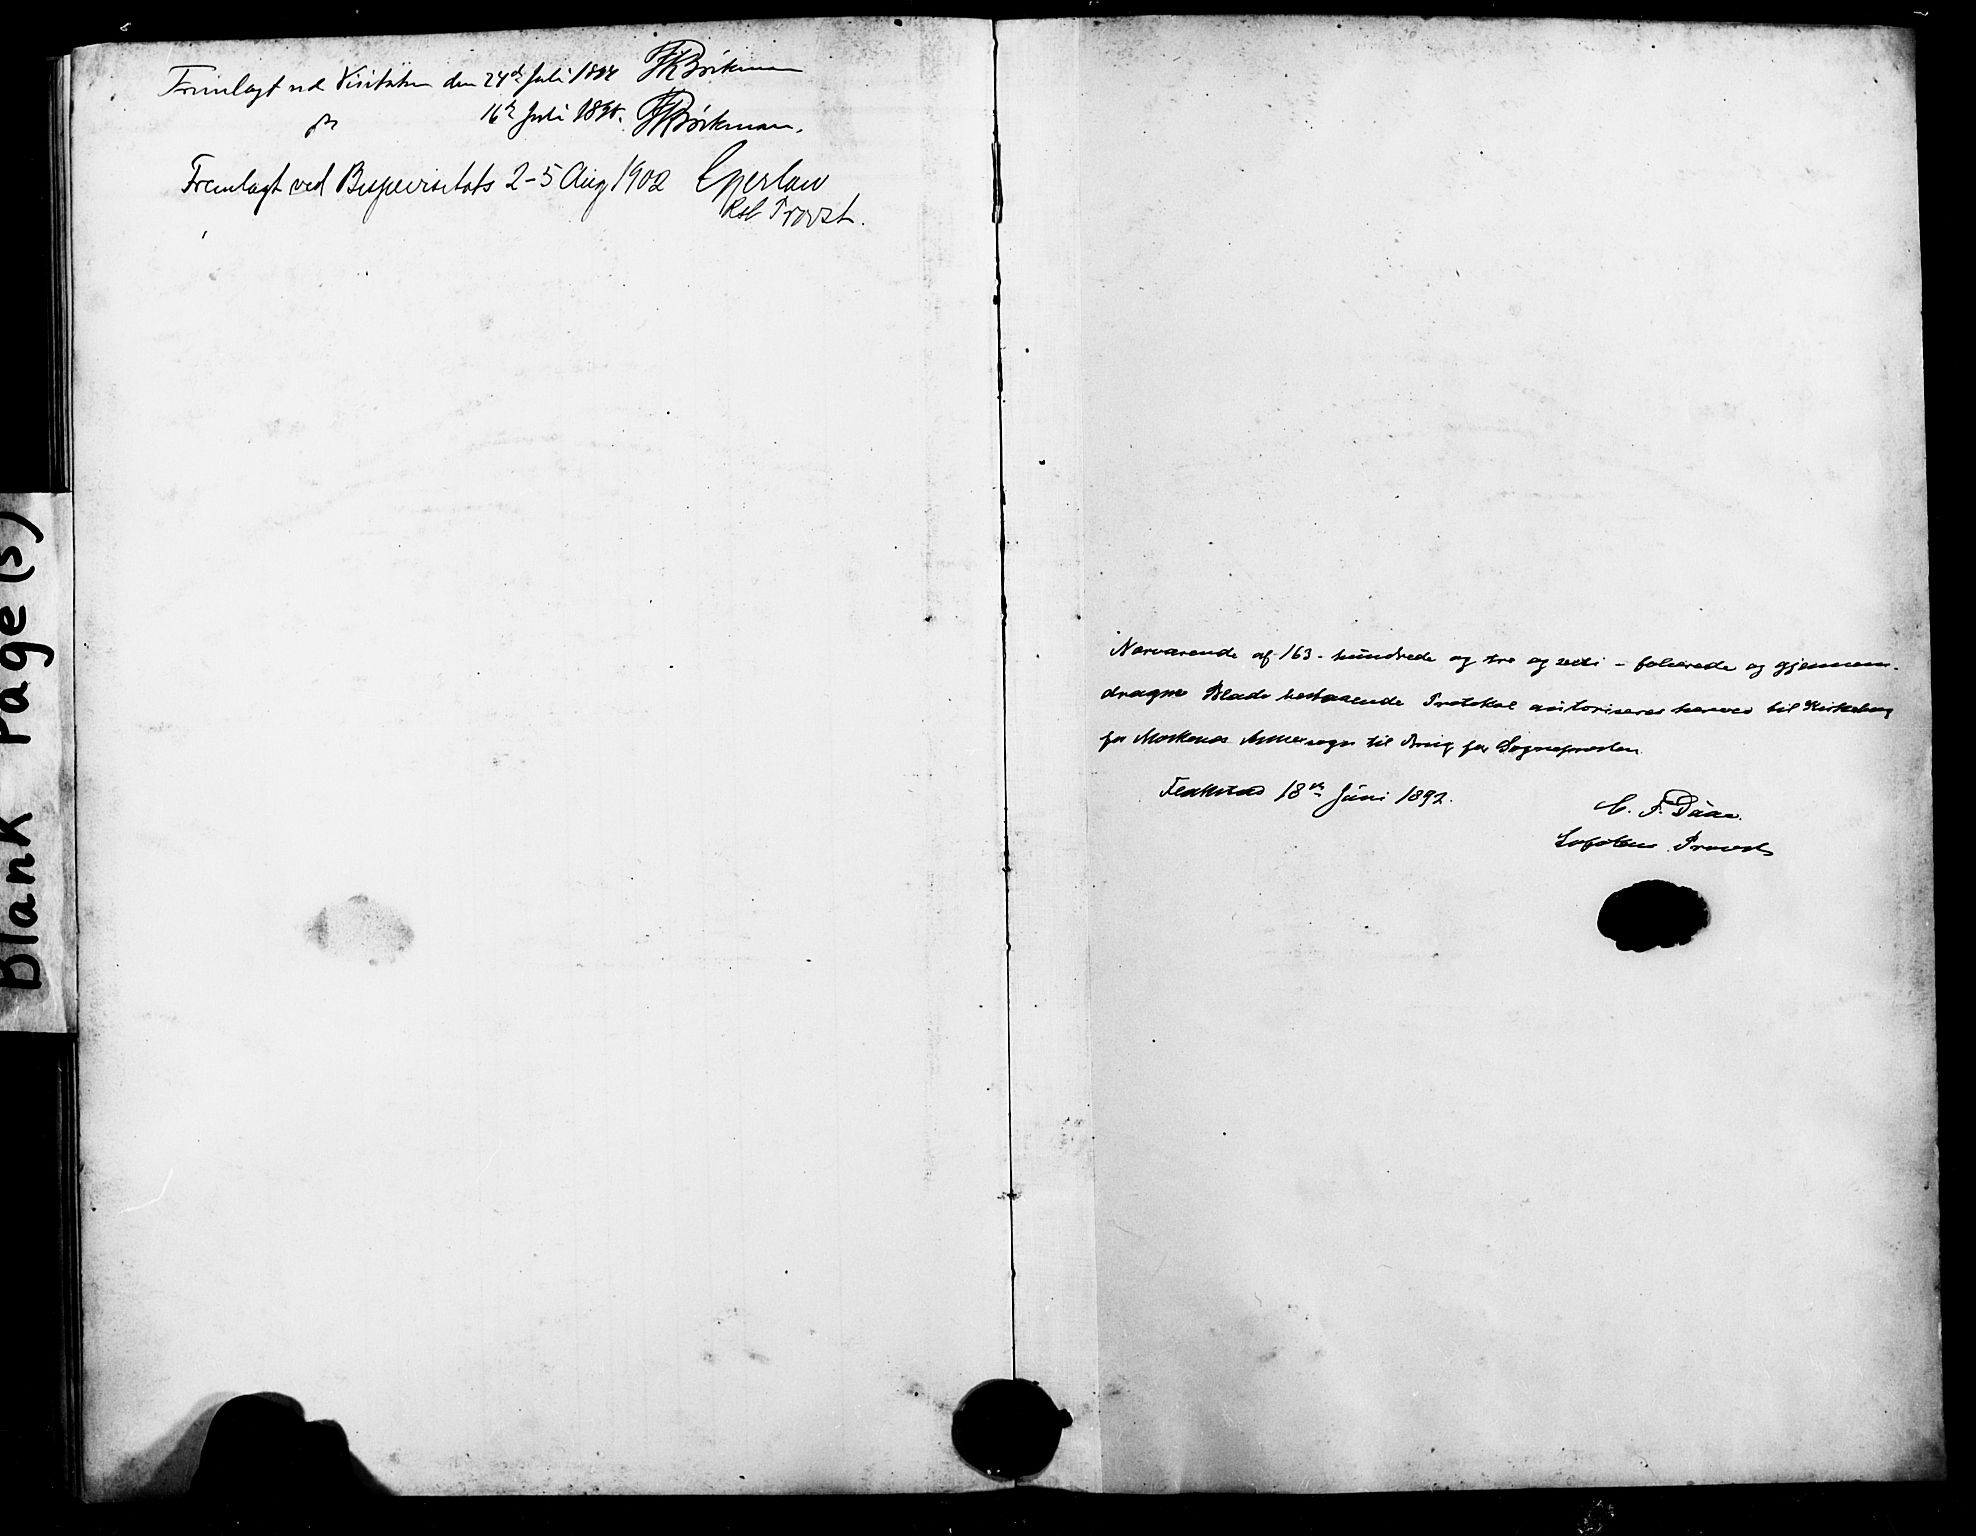 Fremlagt ved Visitatsen den 24de Juli 1894
16de Juli
Fremlagt ved Bispevisitats 2-5 Aug 1902
Provst.
Blank Page(s)
Nærværende af 163 - hundrede og tre og sexti - folierede og gjennem-
dragne Blade bestaaende Protokol autoriseres herved til Kirkebog
for Moskenæs Annexsogn til Brug for Sognepresten.
Flakstad 18de Juni 1892.
C. F. Daae.
Lofotens Provsti